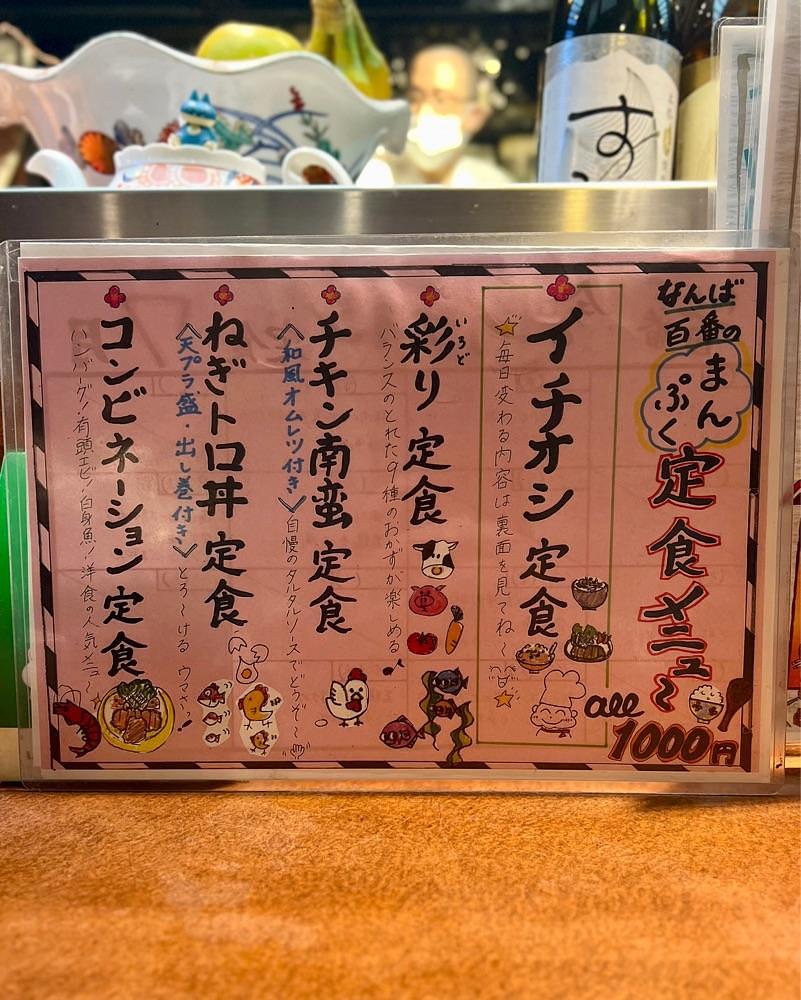 なんば
百番の
まんぷく
定食メニュ〜
all
1000円
イチオシ定食
毎日変わる内容は裏面を見てね〜
彩り定食
いろど
バランスのとれた9種のおかずが楽しめる♪
チキン南蛮定食
〈和風オムレツ付き〉自慢のタルタルソースでどうぞ〜
ねぎトロ丼定食
〈天プラ盛・出し巻付き〉とろ〜ける ウマさ!
コンビネーション定食
ハンバーグ!有頭エビ!白身魚!洋食の人気メニュ〜
す